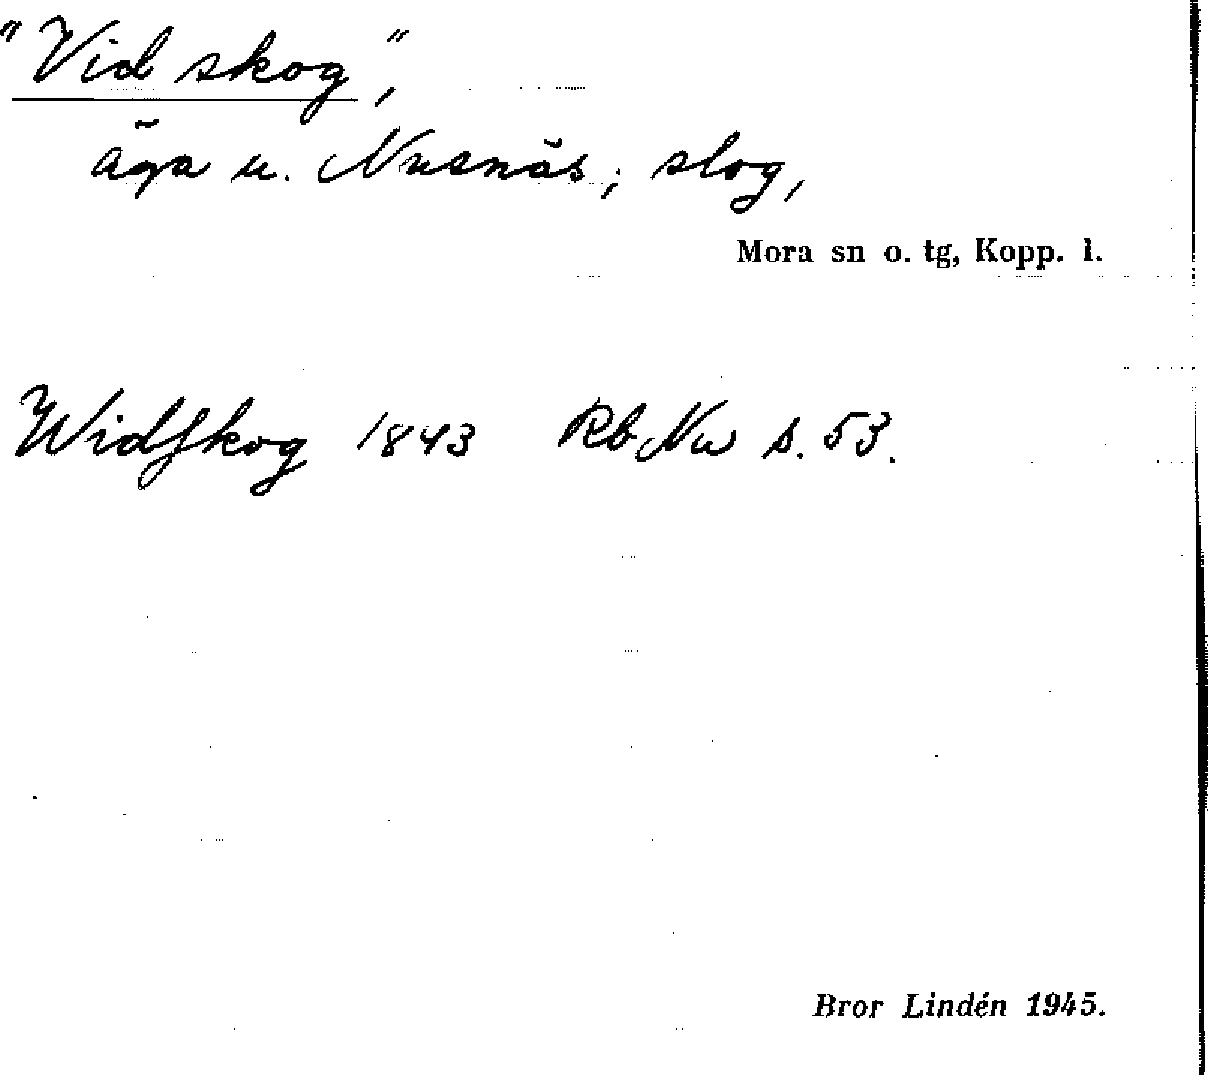 "Vid skog",
äga u. Nusnäs; slog,
Mora sn o. tg, Kopp. l.
Widſkog 1843 Rb Nu s. 53.
Bror Lindén 1945.